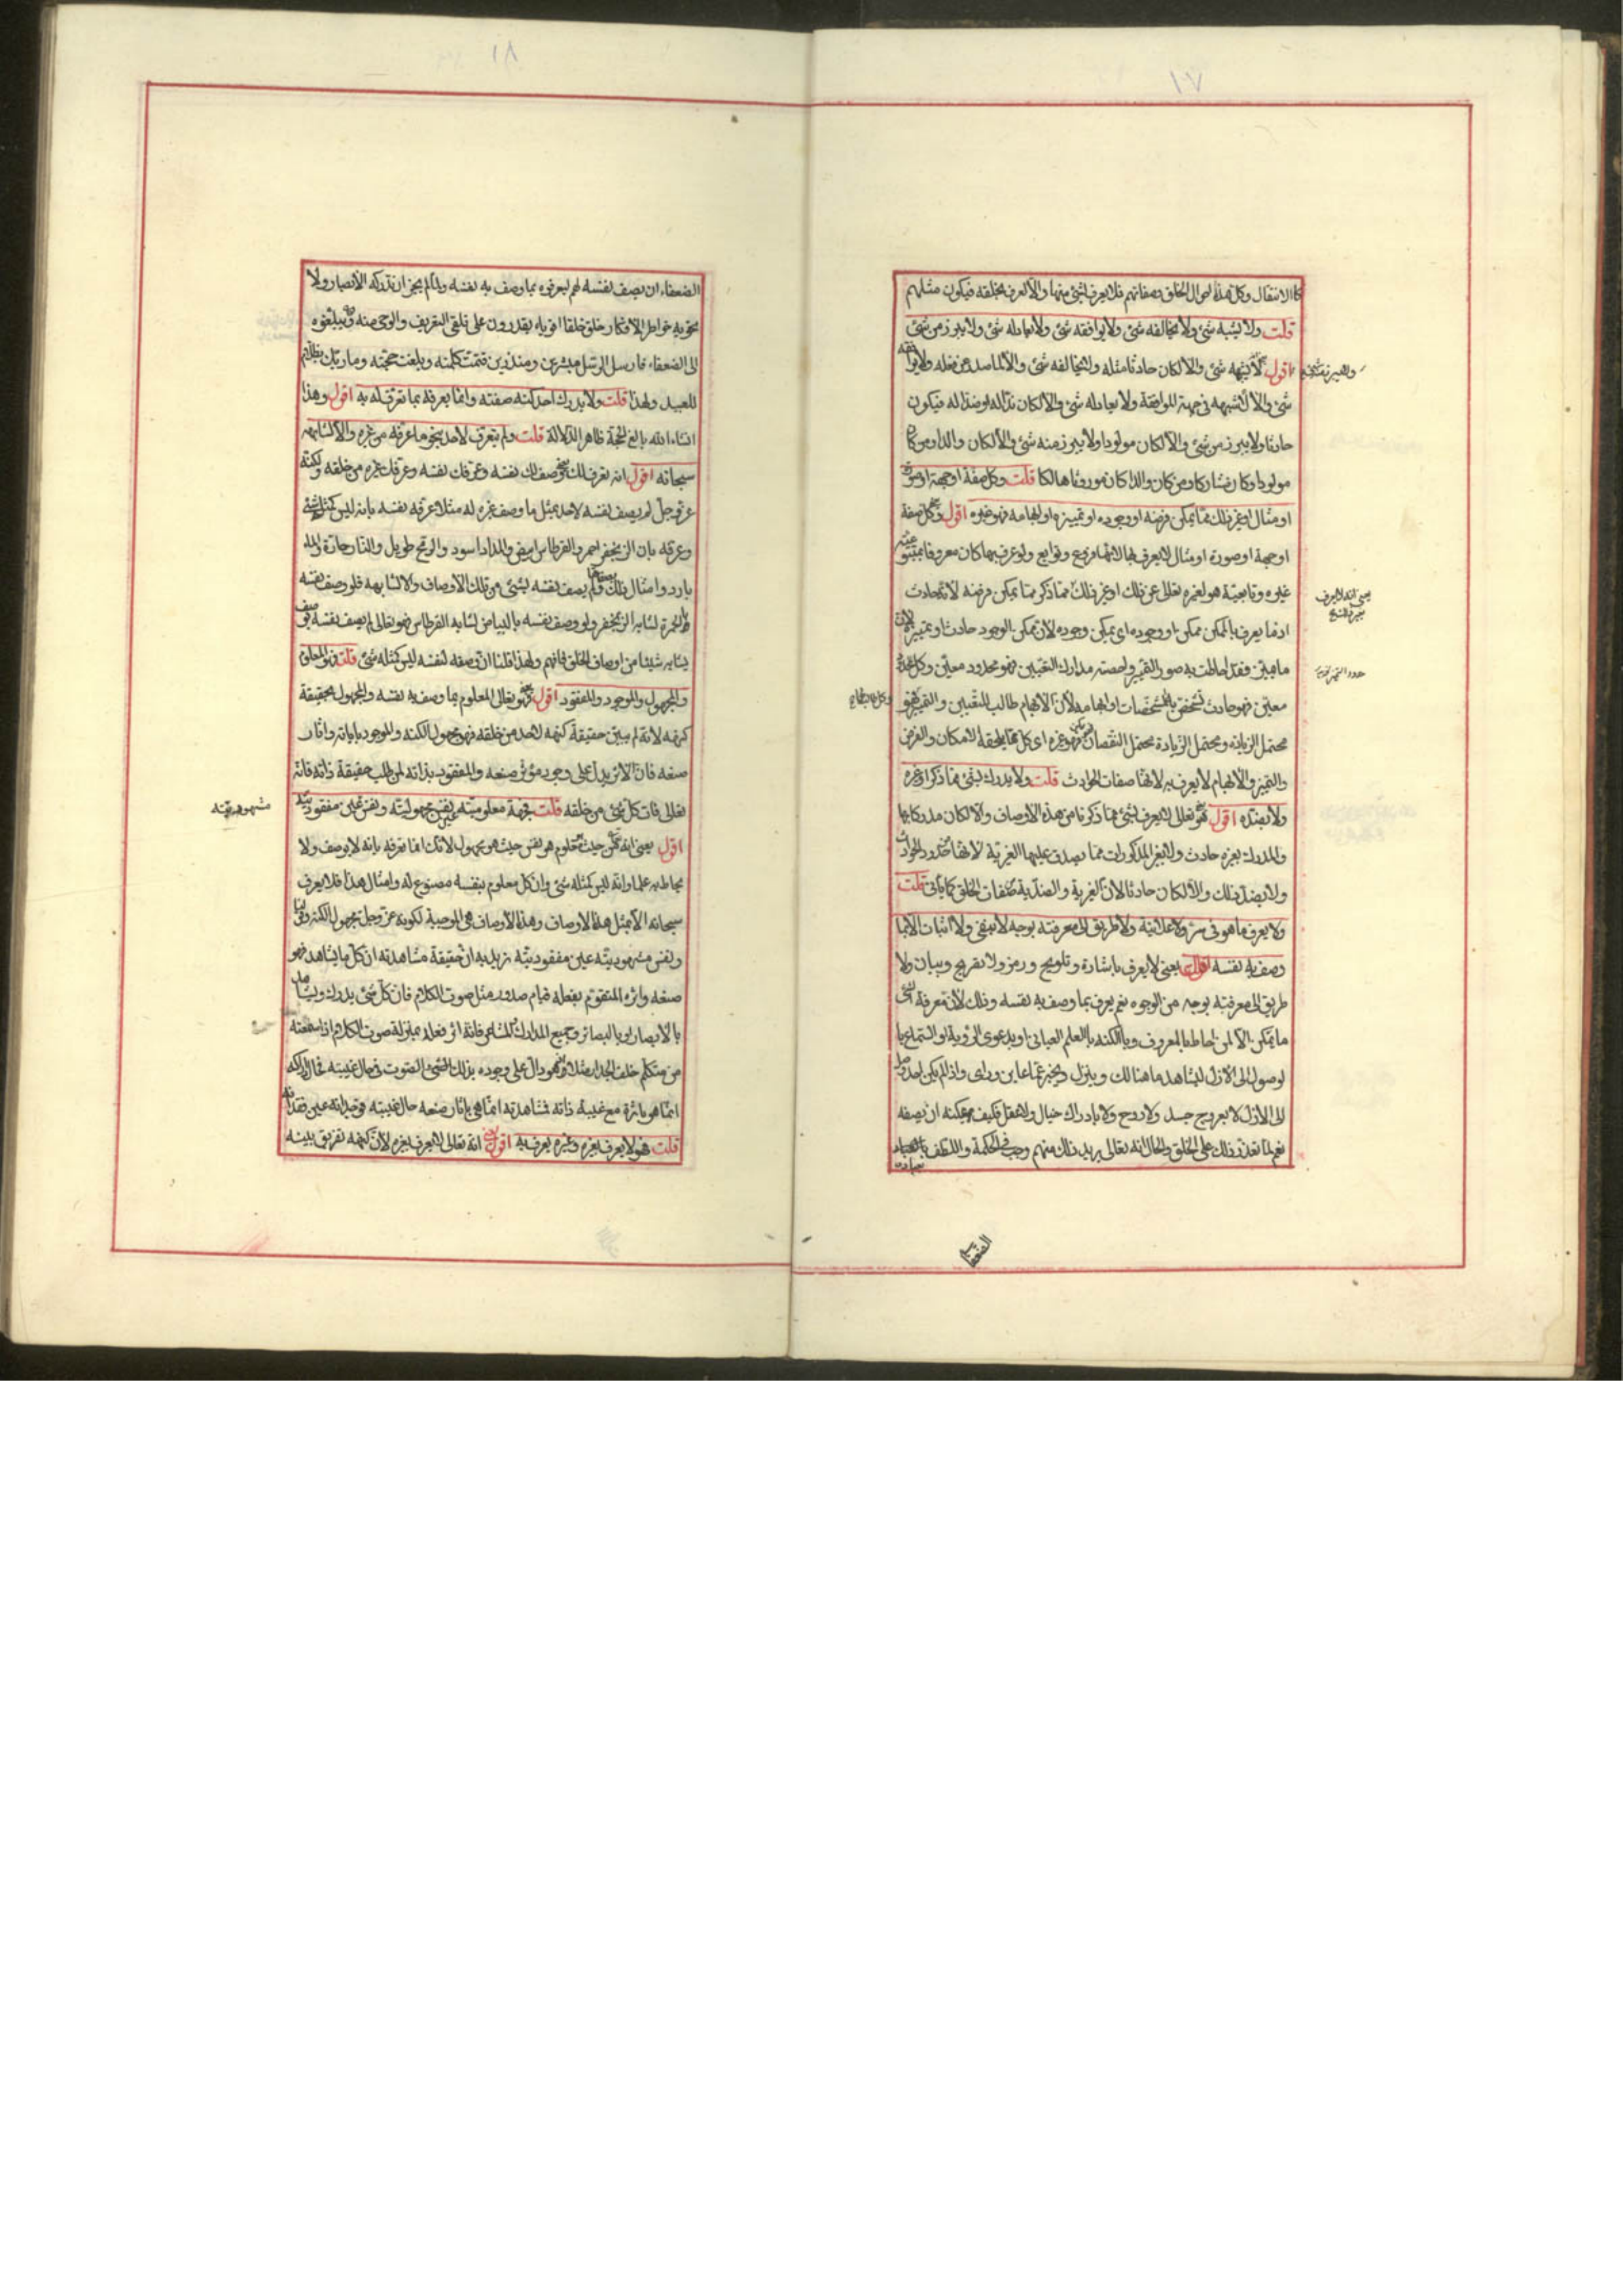 ١٧
كالانتقال وكل هذه احوال الخلق وصفاتهم فلا يعرف بشئ منها والا لعرف بخلقه فيكون مثلهم
قلت ولا يشبه شئ ولا يخالفه شئ ولا يوافقه شئ ولا يعادله شئ ولا يبرز من شئ
اقول لا يشبهه شئ والا لكان حادثا مثله ولا يخالفه شئ والا لما صدر عن فعله ولا يوافقه
شئ والا لأشبهه في جهة الموافقة ولا يعادله شئ والا لكان ندا له او ضدا له فيكون
حادثا ولا يبرز من شئ والا لكان مولودا ولا يبرز منه شئ والا لكان والدا ومن كان
مولودا كان مشاركا ومن كان والدا كان موروثا هالكا قلت وكل صفة او جهة او صورة
او مثال او غير ذلك مما يمكن فرضه او وجوده او تمييزه او ابهامه فهو غيره اقول وكل صفة
او جهة او صورة او مثال لا يعرف بها لانها فروع وتوابع ولو عرف بها كان معروفا بمتبوعية
غيره وتابعية هو لغيره تعالى عن ذلك او غير ذلك مما ذكر مما يمكن فرضه لأنه حادث
اذ ما يعرف بالممكن ممكن او وجوده اى يمكن وجوده لأن ممكن الوجود حادث او تمييزه لأن
ما ميز فقد احاطت به صور التمييز وحصرته مدارك التعيين فهو محدود معين وكل محدود
معين فهو حادث تشخص بالمشخصات او ابهامه لأن الابهام طالب التعيين والتمييز فهو
محتمل الزيادة ومحتمل الزيادة محتمل النقصان فهو غيره اى كل ما يلحقه الامكان والفرض
والتميز والابهام لا يعرف به لانها صفات الحوادث قلت ولا يدرك بشئ مما ذكر او غيره
ولا بضده اقول هو تعالى لا يعرف بشئ مما ذكرنا من هذه الاوصاف والا لكان مدركا بها
والمدرك بغيره حادث ولا بغير المذكورات مما يصدق عليها الغيرية لانها حدود الحوادث
ولا بضد ذلك والا لكان حادثا لان الغيرية والضدية صفات الخلق كما يأتى قلت
ولا يعرف ما هو في سر ولا علانية ولا طريق الى معرفته بوجه لا بنفى ولا اثبات الا بما
وصف به نفسه اقول يعنى لا يعرف باشارة وتلويح ورمز ولا بتصريح وبيان ولا
طريق الى معرفته بوجه من الوجوه نعم يعرف بما وصف به نفسه وذلك لأن معرفة الشئ
ما تمكن الا لمن احاط بالمعروف وبالكنه بالعلم العيانى او بدعوى الرؤية او السماع با
لوصول الى الازل ليشاهد ما هنالك وينزل ويخبر عما عاين وراى واذا لم يكن لاحد وصل
الى الأزل لا بعروج جسد ولا روح ولا بادراك خيال ولا عقل فكيف يمكنه ان يصفه
نعم لما تعذر ذلك على الخلق والحال انه تعالى يريد ذلك منهم وجب في الحكمة واللطف بالعباد
الضعفا
١٨
الضعفاء ان يصف نفسه لهم ليعرفوه بما وصف به نفسه ولما لم يجز ان تدركه الأبصار ولا
تحويه خواطر الأفكار خلق خلقا اقوياء يقدرون على تلقى التعريف والوحى منه ويبلغوه
الى الضعفاء فارسل الرسل مبشرين ومنذرين فتمت كلمته وبلغت حجته وما ربك بظلام
للعبيد ولهذا قلت ولا يدرك احد كنه صفته وانما يعرفه بما تعرف له به اقول وهذا
انشاء الله بالغ الحجة ظاهر الدلالة قلت ولم يتعرف لاحد بنحو ما عرفه من غيره والا لشابهه
سبحانه اقول انه تعرف لك بوصف لك نفسه وعرفك نفسه وعرفك غيره من خلقه ولكنه
عز وجل لم يصف نفسه لاحد بمثل ما وصف غيره له مثلا عرفه نفسه بانه ليس كمثله شئ
وعرفه بان الزنجفر احمر والقرطاس ابيض والمداد اسود والرمح طويل والنار حارة والماء
بارد وامثال ذلك ولم يصف نفسه بشئ من تلك الأوصاف والا لشابهه فلو وصف نفسه
بالحمرة لشابه الزنجفر ولو وصف نفسه بالبياض لشابه القرطاس فهو تعالى لم يصف نفسه بوصف
يشابه شيئا من اوصاف الخلق فافهم ولهذا قلنا ان وصفه لنفسه ليس كمثله شئ قلت فهو المعلوم
والمجهول والموجود والمفقود اقول فهو تعالى المعلوم بما وصف به نفسه والمجهول بحقيقة
كنهه لانه لم يبين حقيقة كنهه لاحد من خلقه فهو مجهول الكنه والموجود باياته واثار
صنعه فان الأثر يدل على وجود مؤثر صنعه والمفقود بذاته لمن طلب حقيقة ذاته فانه
تعالى فات كل شئ من خلقه قلت فجهة معلوميته نفس مجهوليته ونفس عين مفقوديته
مشهوديته
اقول يعنى انه من حيث هو معلوم هو نفس حيث هو مجهول لانك انما تعرفه بانه لا يوصف ولا
يحاط به علما وانه ليس كمثله شئ وان كل معلوم بنفسه مصنوع له وامثال هذا فلا يعرف
سبحانه الا بمثل هذه الاوصاف وهذه الأوصاف هى الموجبة لكونه عز وجل مجهول الكنه وقولنا
ونفس مشهوديته عين مفقوديته نريد به ان حقيقة مشاهدته ان كل ما يشاهد فهو
صنعه واثره المتقوم بفعله قيام صدور مثل صوت الكلام فان كل شئ يدرك ويشاهد
بالابصار او بالبصائر وجميع المدارك والمشاعر فانه اثر فعله بمنزلة صوت الكلام اذا سمعته
من متكلم خلف الجدار مثلا فهو دال على وجوده بذلك الشئ الصوت في حال غيبته فادراكه
انما هو باثره مع غيبة ذاته فمشاهدته انما هى باثار صنعه حال غيبته فوجدانه عين فقدانه
قلت فهو لا يعرف بغيره وغيره يعرف به اقول انه تعالى لا يعرف بغيره لأن كنهه تفريق بينه